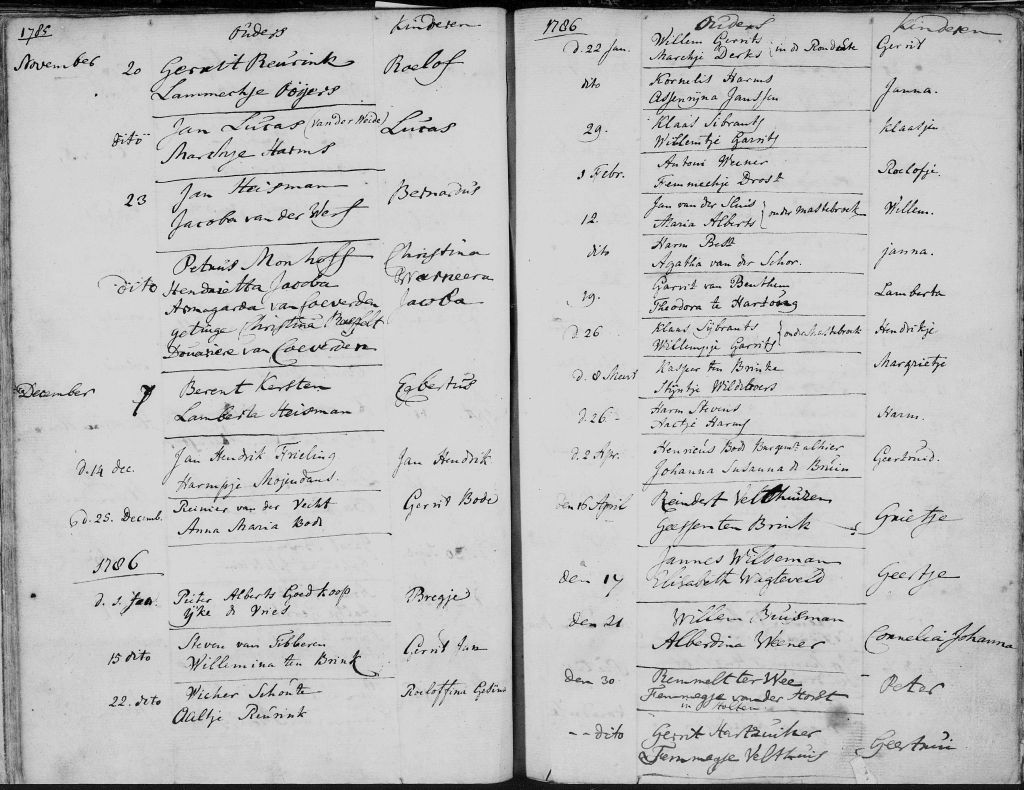 1785 Ouders Kinderen
November 20 Gerrit Reurink Roelof
Lammechje
dito Jan Lucas (van der Weide) Lucas
Marchje Harms
23 Jan Heisman Bernardus
Jacoba van der Werf
Petrus Monhoff Christina
dito Hendrietta Jacoba
Armagarda van Coeverden Jacoba
getuige Christina
Douariere van Coeverden
December 7 Berent Kersten Egbertus
Lamberta Heisman
d. 14 dec. Jan Hendrik Frieling Jan Hendrik
Harmpje
d. 25. Decemb. Reinier van der Vecht Gerrit Bode
Anna Maria Bode
1786
d. 1. Jan. Pieter Alberts Goedkoop Bregje
Yke de Vries
15 dito Steven van Tibberen Gerrit Jan
Willemina ten Brink
22. dito Wicher Schonte Roeloffina
Aaltje Reurink
1786 Ouders Kinderen
d. 22 Jan. Willem Gerrits Gerrit
Marchje Derks in de
dito Kornelis Harms Janna.
Janssen
29. Klaas Sibrants Klaasjen
Willemtje Garrits
1 Febr. Antoni Weener Roelofje.
Femmechje Drost
12. Jan van der Sluis Willem.
Maria Alberts onder Mastebroek
dito Harm Best Janna.
Agatha van der Schor.
19. Garrit van Benthem Lamberta
Theodora te Hartoong
d. 26 Klaas Sijbrants Hendrikje
Willempje Garrits onder Mastebroek
d. 8 Meert Kasper ten Brinke Margrietje
Stijntje Wildeboers
d. 26 - Harm Stevens Harm.
Aaltje Harms
d. 2 Apr. Henricus Bode Burgemr. alhier Geertruid.
Johanna Susanna de Bruin
den 16 April Reindert Velthuizen
Geessem ten Brink Grietje
Jannes Wildeman
den 17 Elizabeth Wagteveld Geertje
den 21 Willem Buisman
Alberdina Weener Cornelia Johanna
den 30 Remmelt ter Wee Peter
Femmegje van der Horst
in Holten
-- dito Gerrit Hartzuiker Geertrui
Femmegje Velthuis